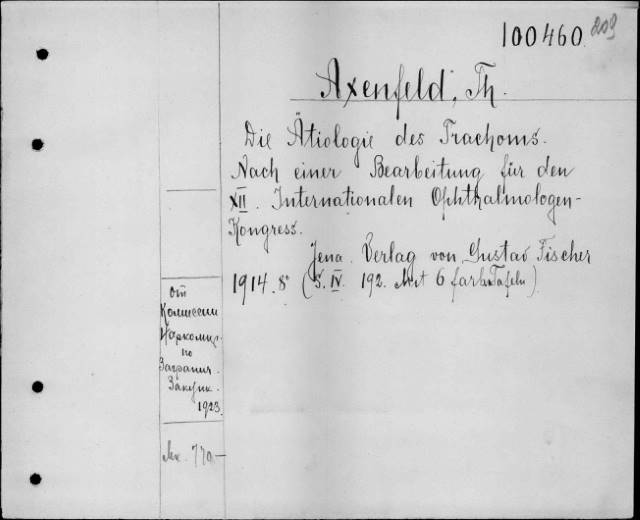 100460 209
Axenfeld, Th.
Die Ätiologie des Trachoms.
Nach einer Bearbeitung für den
XII. Internationalen Ophthalmologen-
Kongress.
Jena. Verlag von Gustav Fischer
1914. 8° (S. IV. 192. Mit 6 farb. Tafeln)
от
Комиссии
Наркомпр.
по
Загранич.
Закупк.
1923.
Мк. 770–